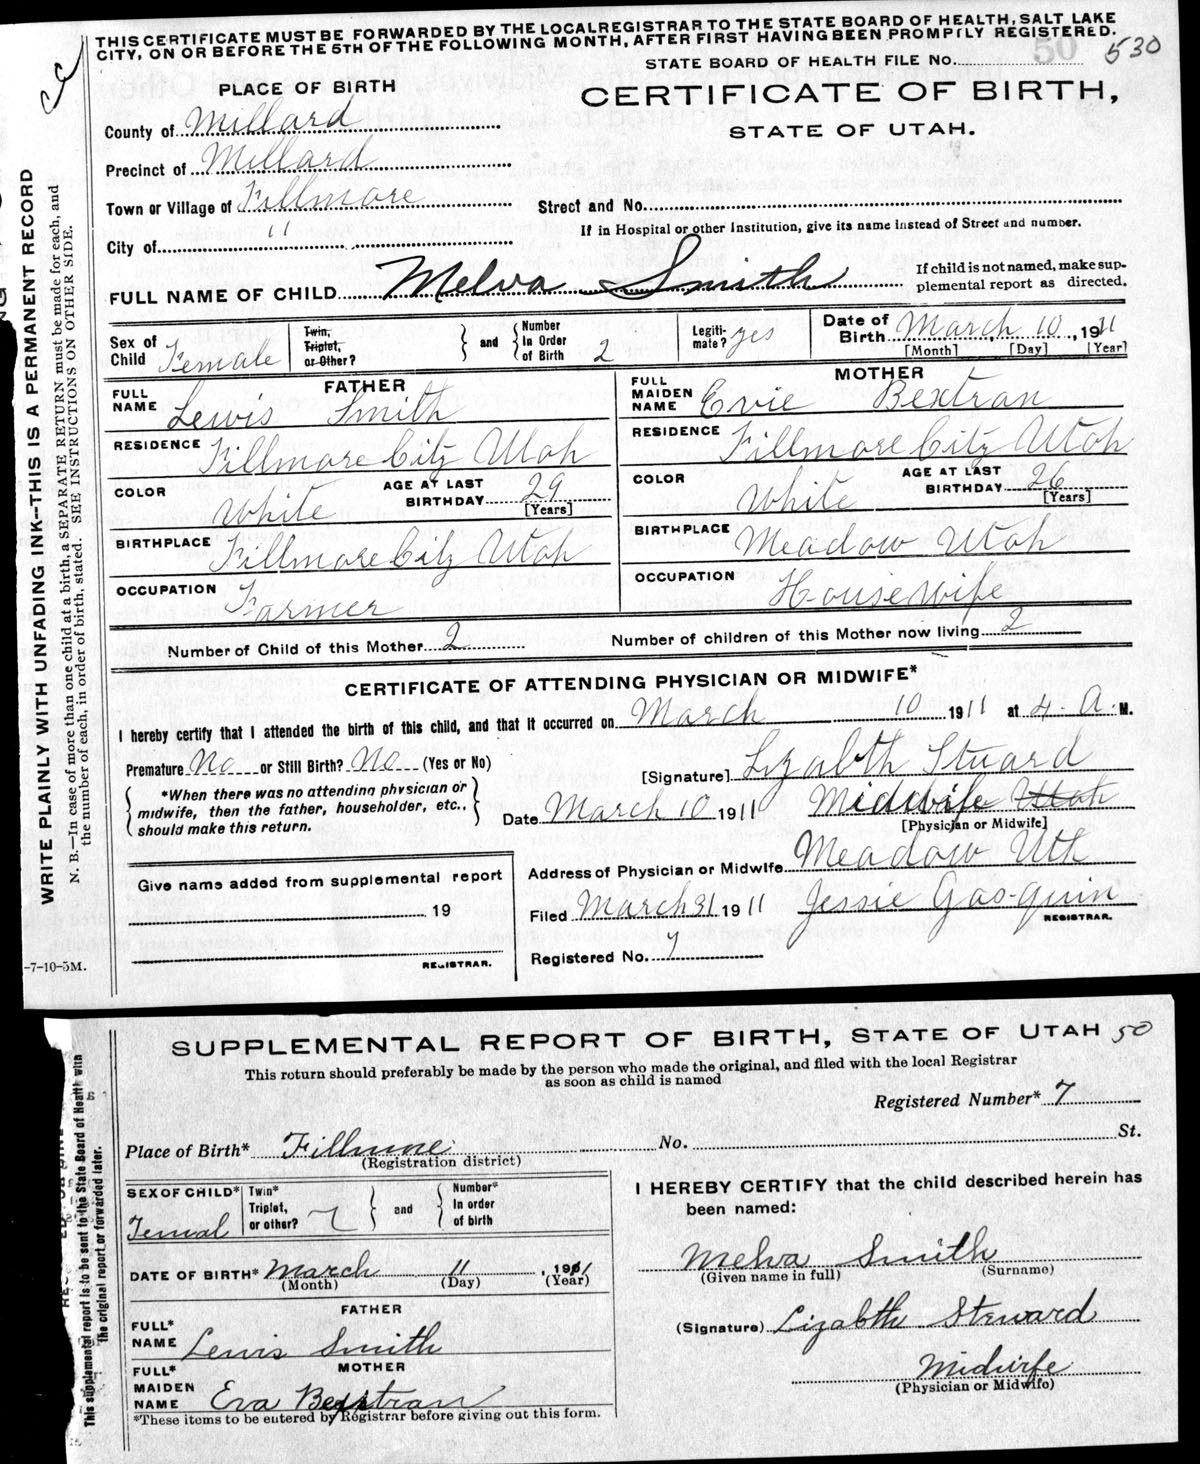 THIS CERTIFICATE MUST BE FORWARDED BY THE LOCAL REGISTRAR TO THE STATE BOARD OF HEALTH, SALT LAKE
CITY, ON OR BEFORE THE 5TH OF THE FOLLOWING MONTH, AFTER FIRST HAVING BEEN PROMPTLY REGISTERED.
STATE BOARD OF HEALTH FILE No. 50 530
PLACE OF BIRTH
CERTIFICATE OF BIRTH,
STATE OF UTAH.
County of Millard
Precinct of Millard
Town or Village of Fillmore
Street and No.
City of "
If in Hospital or other Institution, give its name instead of Street and number.
FULL NAME OF CHILD Melva Smith
If child is not named, make sup-
plemental report as directed.
Sex of Child Female
Twin, Triplet, or Other? and Number In Order of Birth 2
Legiti-mate? yes
Date of Birth March 10, 1911
[Month] [Day] [Year]
FATHER
FULL NAME Lewis Smith
RESIDENCE Fillmore City Utah
COLOR White AGE AT LAST BIRTHDAY 29 [Years]
BIRTHPLACE Fillmore City Utah
OCCUPATION Farmer
MOTHER
FULL MAIDEN NAME Evie Bextran
RESIDENCE Fillmore City Utah
COLOR White AGE AT LAST BIRTHDAY 26 [Years]
BIRTHPLACE Meadow Utah
OCCUPATION Housewife
Number of Child of this Mother 2 Number of children of this Mother now living 2
CERTIFICATE OF ATTENDING PHYSICIAN OR MIDWIFE*
I hereby certify that I attended the birth of this child, and that it occurred on March 10 1911 at 4. A. M.
Premature No or Still Birth? No (Yes or No)
[Signature] Lizabth Stuard
*When there was no attending physician or
midwife, then the father, householder, etc.,
should make this return.
Date March 10 1911 Midwife Utah
[Physician or Midwife]
Address of Physician or Midwife Meadow Uth
Give name added from supplemental report
19
REGISTRAR.
Filed March 31 1911 Jessie Gas-quin
REGISTRAR.
Registered No. 7
-7-10-5M.
WRITE PLAINLY WITH UNFADING INK—THIS IS A PERMANENT RECORD
N. B.—In case of more than one child at a birth, a SEPARATE RETURN must be made for each, and
the number of each, in order of birth, stated. SEE INSTRUCTIONS ON OTHER SIDE.
SUPPLEMENTAL REPORT OF BIRTH, STATE OF UTAH 50
This return should preferably be made by the person who made the original, and filed with the local Registrar
as soon as child is named
Registered Number* 7
Place of Birth* Fillmore No. St.
(Registration district)
SEX OF CHILD* Femal
Twin* Triplet, or other? and Number* In order of birth
DATE OF BIRTH* March 11, 1911
(Month) (Day) (Year)
FATHER
FULL* NAME Lewis Smith
MOTHER
FULL* MAIDEN NAME Eva Bextran
*These items to be entered by Registrar before giving out this form.
I HEREBY CERTIFY that the child described herein has
been named:
Melva Smith
(Given name in full) (Surname)
(Signature) Lizabth Steward
Midwife
(Physician or Midwife)
This supplemental report is to be sent to the State Board of Health with
the original report or forwarded later.